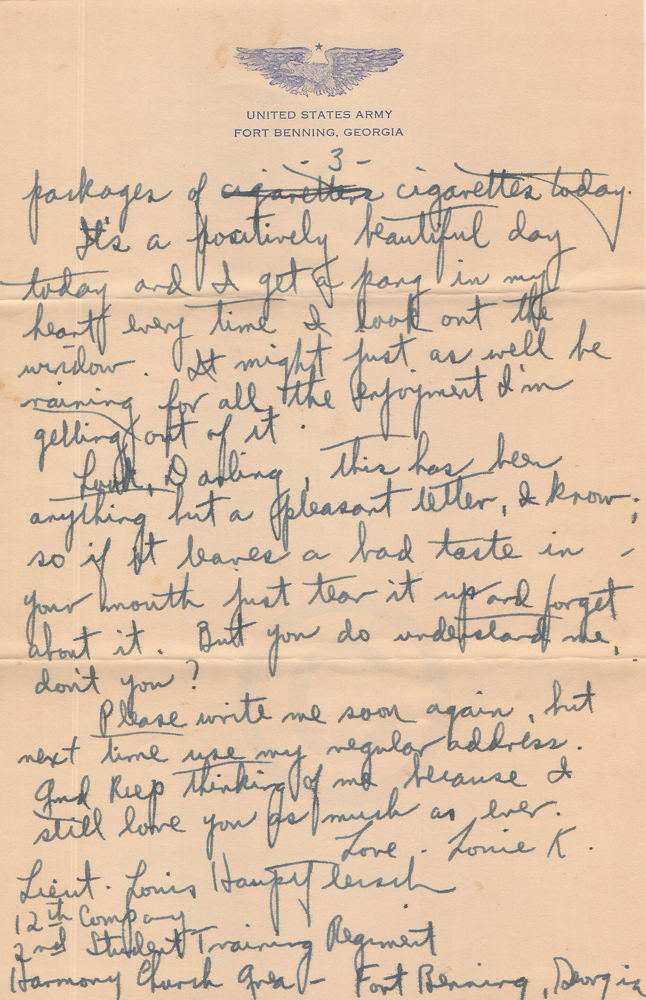 UNITED STATES ARMY
FORT BENNING, GEORGIA
- 3 -
packages of cigarettes cigarettes today.
It's a positively beautiful day
today and I get a pang in my
heart every time I look out the
window. It might just as well be
raining for all the enjoyment I'm
getting out of it.
Look, Darling, this has been
anything but a pleasant letter, I know,
so if it leaves a bad taste in
your mouth just tear it up and forget
about it. But you do understand me,
don't you?
Please write me soon again, but
next time use my regular address.
And keep thinking of me because I
still love you as much as ever.
Love - Louie K.
Lieut. Louis
12th Company
2nd Student Training Regiment
Harmony Church Area - Fort Benning, Georgia